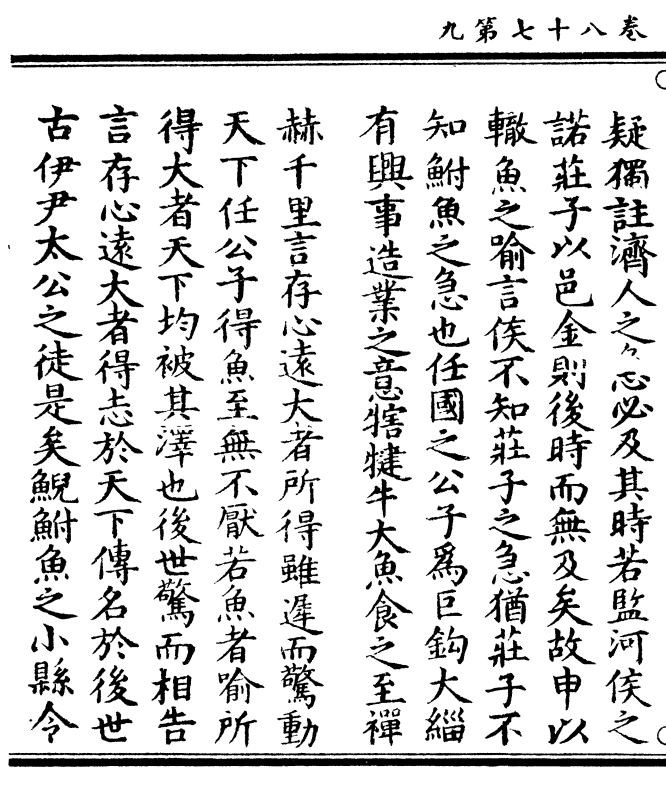 卷八十七第九
疑獨註濟人之急必及其時若監河侯之
諾莊子以邑金則後時而無及矣故申以
轍魚之喻言侯不知莊子之急猶莊子不
知鮒魚之急也任國之公子爲巨鈎大緇
有興事造業之意犗犍牛大魚食之至禪
赫千里言存心遠大者所得雖遲而驚動
天下任公子得魚至無不厭若魚者喻所
得大者天下均被其澤也後世驚而相告
言存心遠大者得志於天下傳名於後世
古伊尹太公之徒是矣鯢鮒魚之小縣令